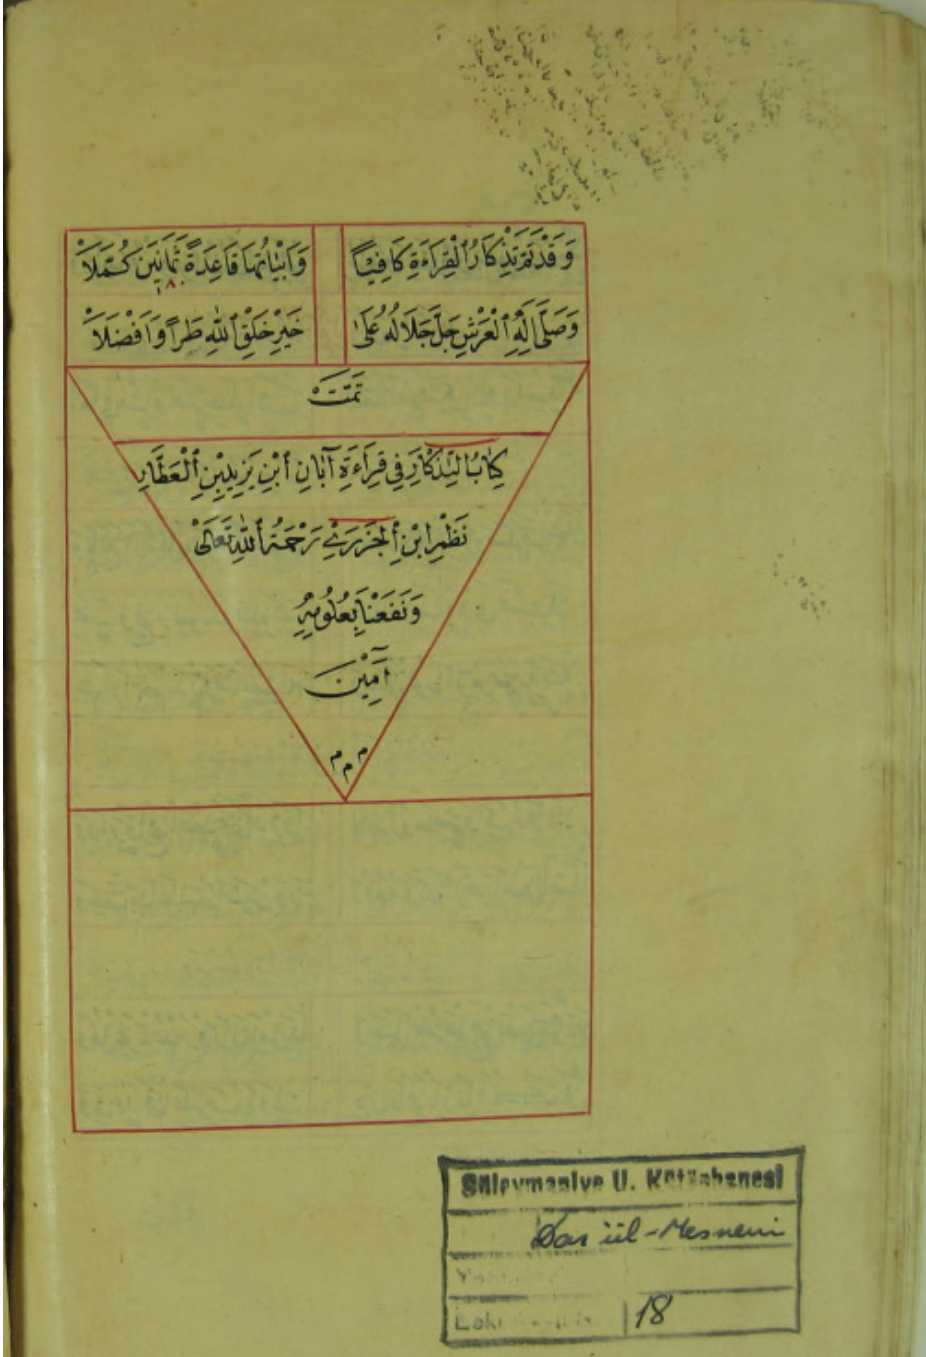 وَقَدْ تَمَّ تَذْكَارُ ٱلْقِرَاءَةِ كَافِيًا وَاَبْيَاتُهَا قَاعِدَةً ثَمَانِينَ كُمَّلَاً
٨٠
وَصَلَّى اِلٰهُ ٱلْعَرْشِ جَلَّ جَلَالُهُ عَلَى خَيْرِ خَلْقِ ٱللهِ طُرًّا وَاَفْضَلَاً
تَمَّتْ
كِتَابُ التِّذْكَارِ فِي قِرَاءَةِ آبَانِ ٱبْنِ يَزِيدِبْنِ ٱلْعَطَّارِ
نَظْمِ ابْنِ ٱلْجَزَرِيْ رَحْمَةُ ٱللهِ تَعَالَىْ
وَنَفَعْنَا بِعُلُومِهِ
آمِيْنَ
م م م
Süleymaniye U. Kütüphanesi
Dar ül-Mesnevi
Eski
18